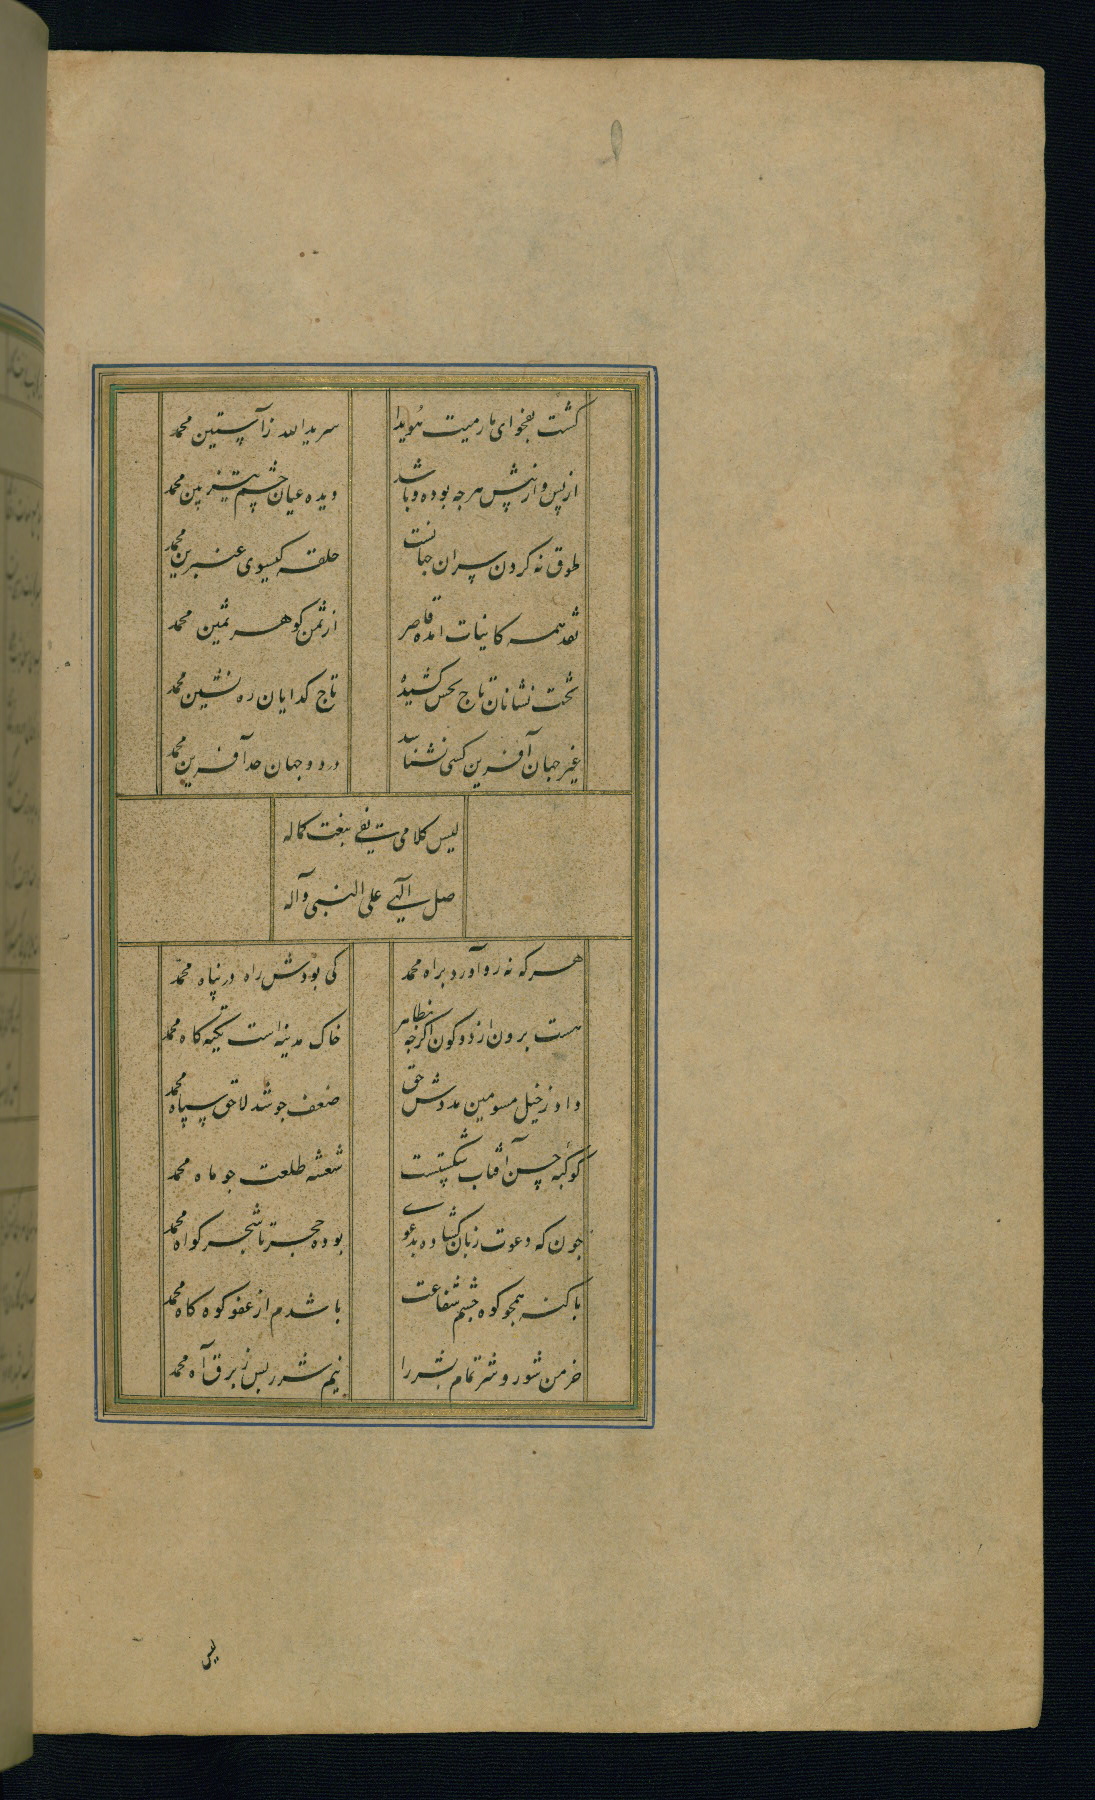 گشت بفحوای مارمیت هویدا سر یدالله ز آستین محمد
از پس و از پیش هرچه بوده و باشد دیده عیان چشم تیزبین محمد
طوق نه کردن سران جهانست حلقه کیسوی عنبرین محمد
نقد همه کاینات امده قاصر از ثمن کوهر ثمین محمد
تخت نشانان تاج بخش کشیده تاج کدایان ره نشین محمد
غیر جهان آفرین کسی نشناسد در دو جهان حد آفرین محمد
لیس کلامی یفی بنعت کماله
صل الهی علی النبی و آله
هر که نه رو آورد براه محمد کی بودش راه در پناه محمد
هست برون از دو کون اکرچه بظاهر خاک مدینه است تکیه کاه محمد
داد ز خیل مسومین مددش حق ضعف جو شد لاحق سپاه محمد
کوکبه حسن آفتاب شکستست شعشه طلعت جو ماه محمد
جون که دعوت زبان کشاده بدعوی بوده حجر تا شجر کواه محمد
با کنه همجو کوه جشم شفاعت باشدم از عفو کوه کاه محمد
خرمن شور و شر تمام بشر را نیم شرر بس ز برق آه محمد
لیس